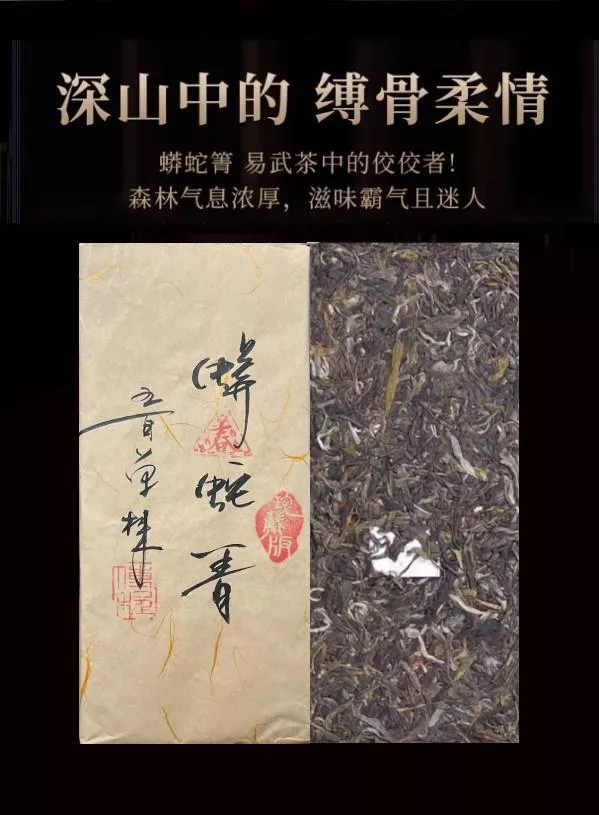 深山中的 缚骨柔情
蟒蛇箐 易武茶中的佼佼者!
森林气息浓厚，滋味霸气且迷人
蟒蛇箐
春
珍藏版
单株